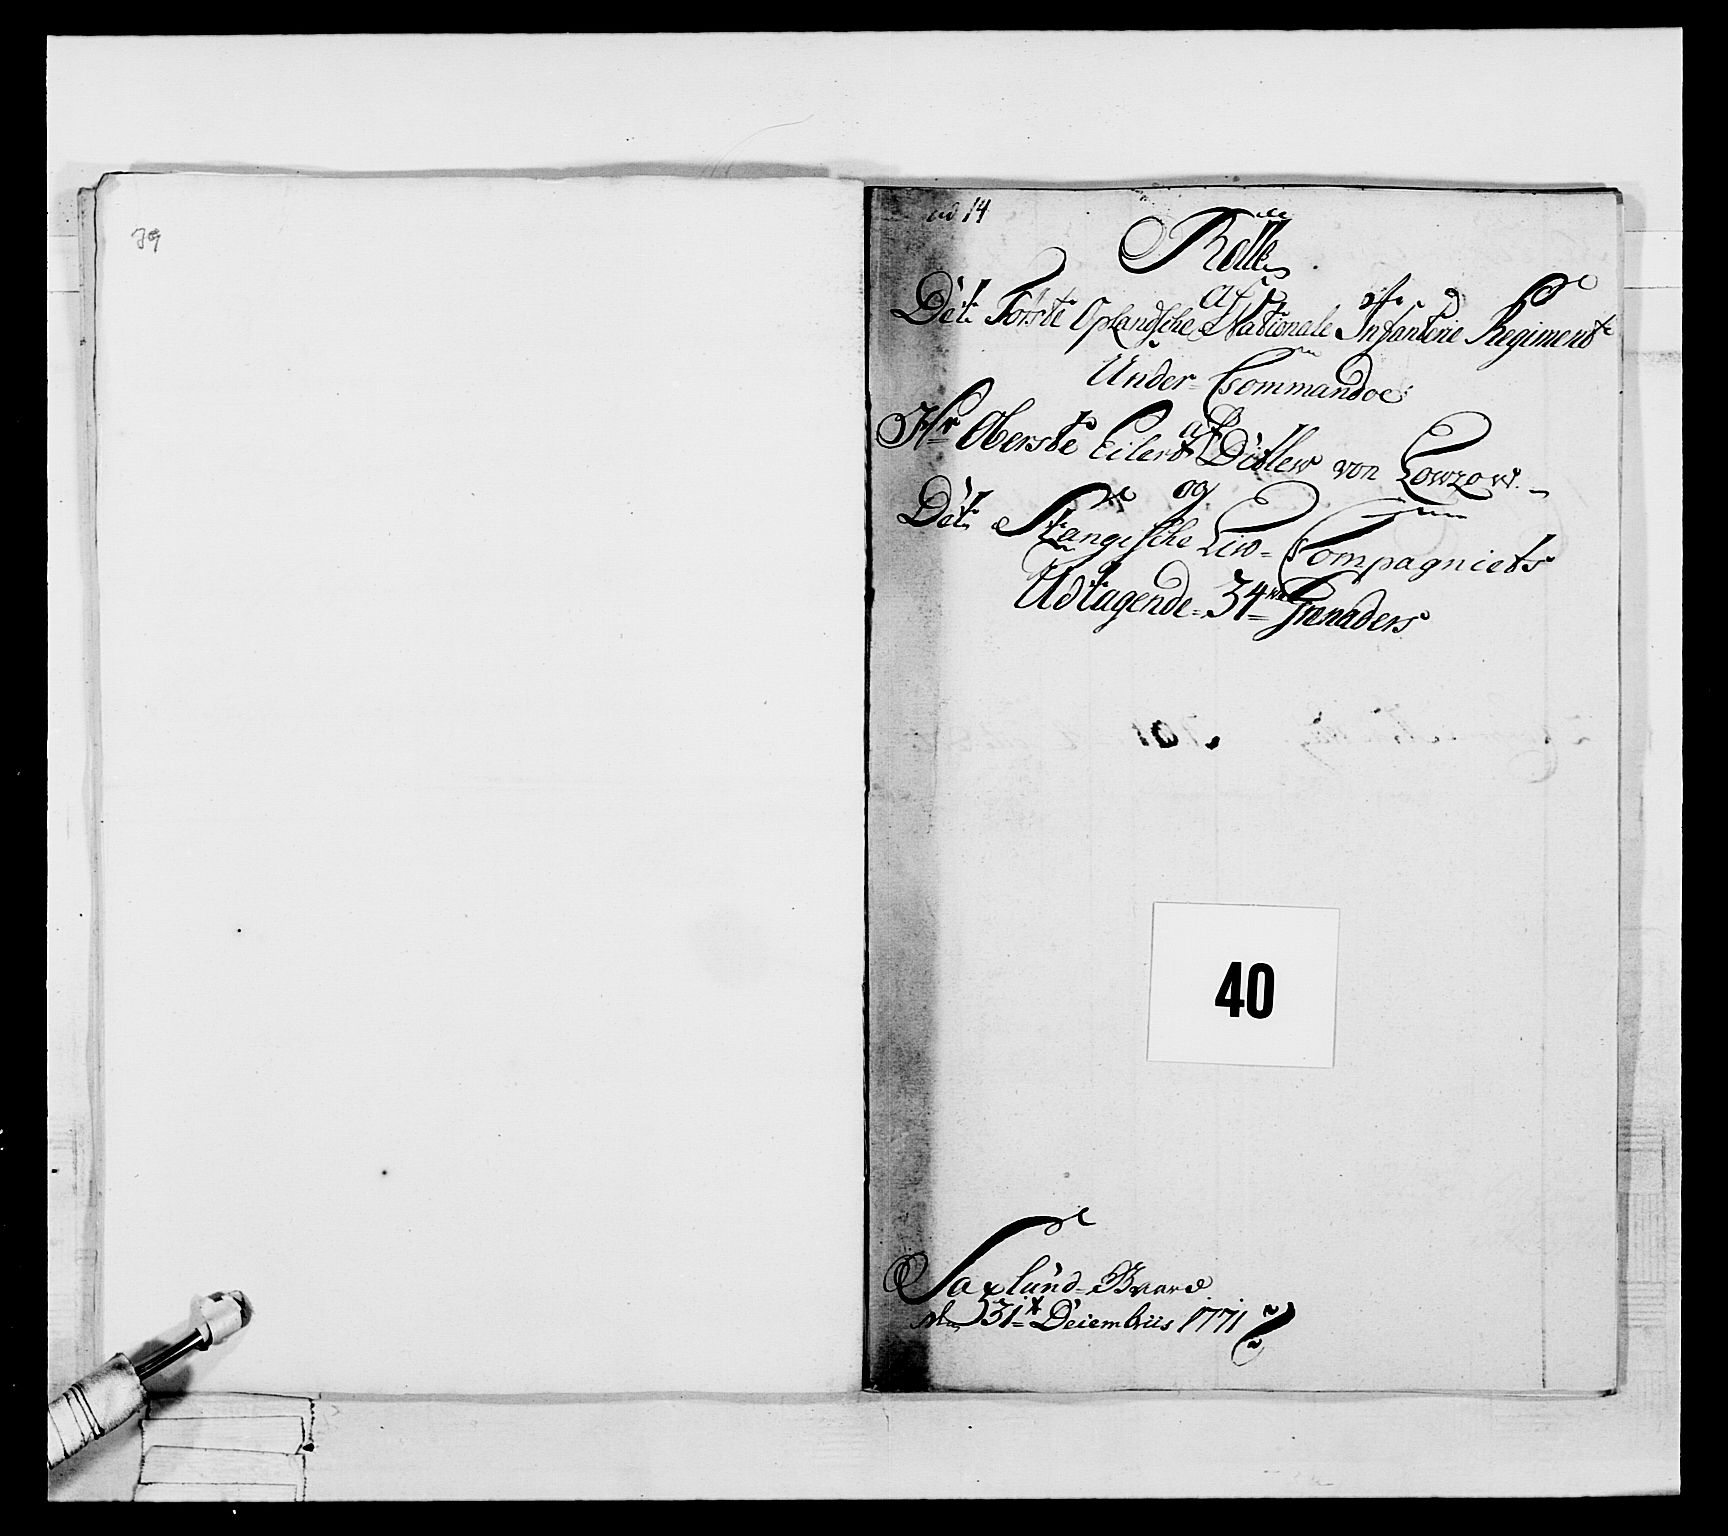 39
ad 14
Rolle
Af
Det Förste Oplandsche Nationale Infanterie Regiment
Under Commandoe
af
Hr Oberste Eilert Ditlew von Lowzow
og
Det Stangesche Liw-Compagniets
Udtagende 34re Grenaders
40
Saxlund-Gaard
den 31t Decembriis 1771